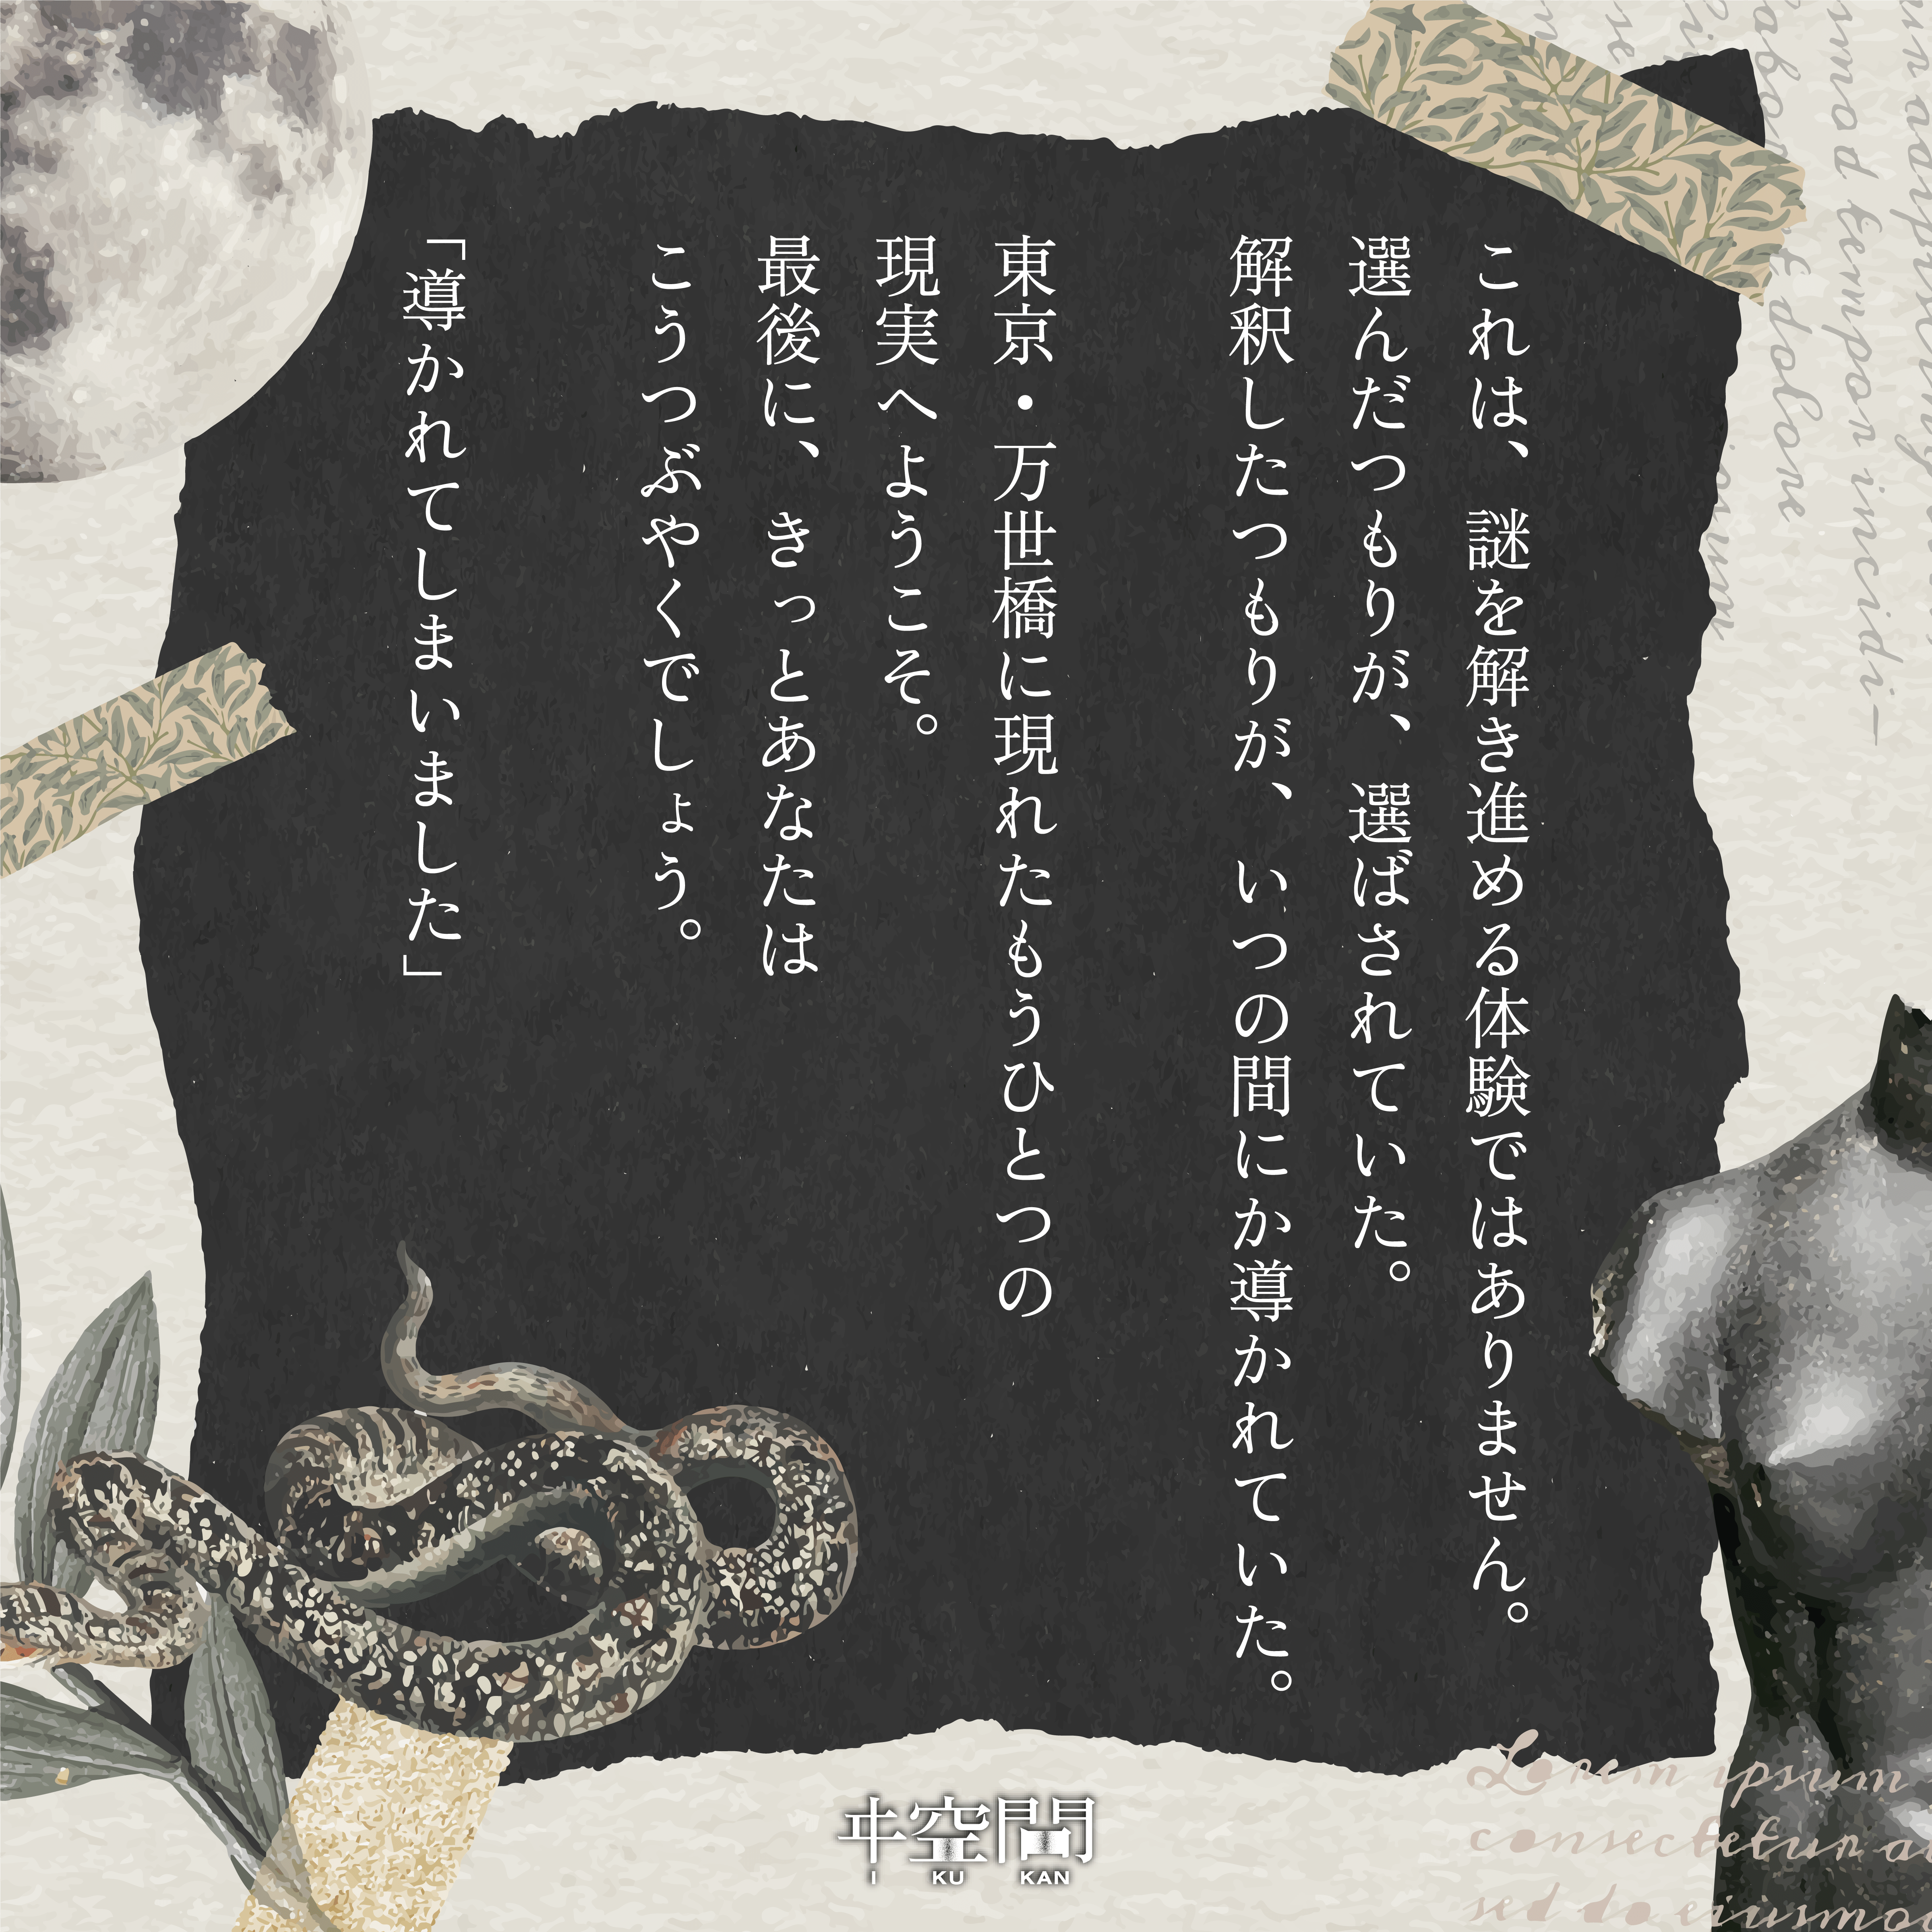 これは、謎を解き進める体験ではありません。
選んだつもりが、選ばされていた。
解釈したつもりが、いつの間にか導かれていた。
東京・万世橋に現れたもうひとつの
現実へようこそ。
最後に、きっとあなたは
こうつぶやくでしょう。
「導かれてしまいました」
smod tempor incidi—
Lorem ipsum
consectetur a
sed do eiusmo
ヰ空間
I KU KAN